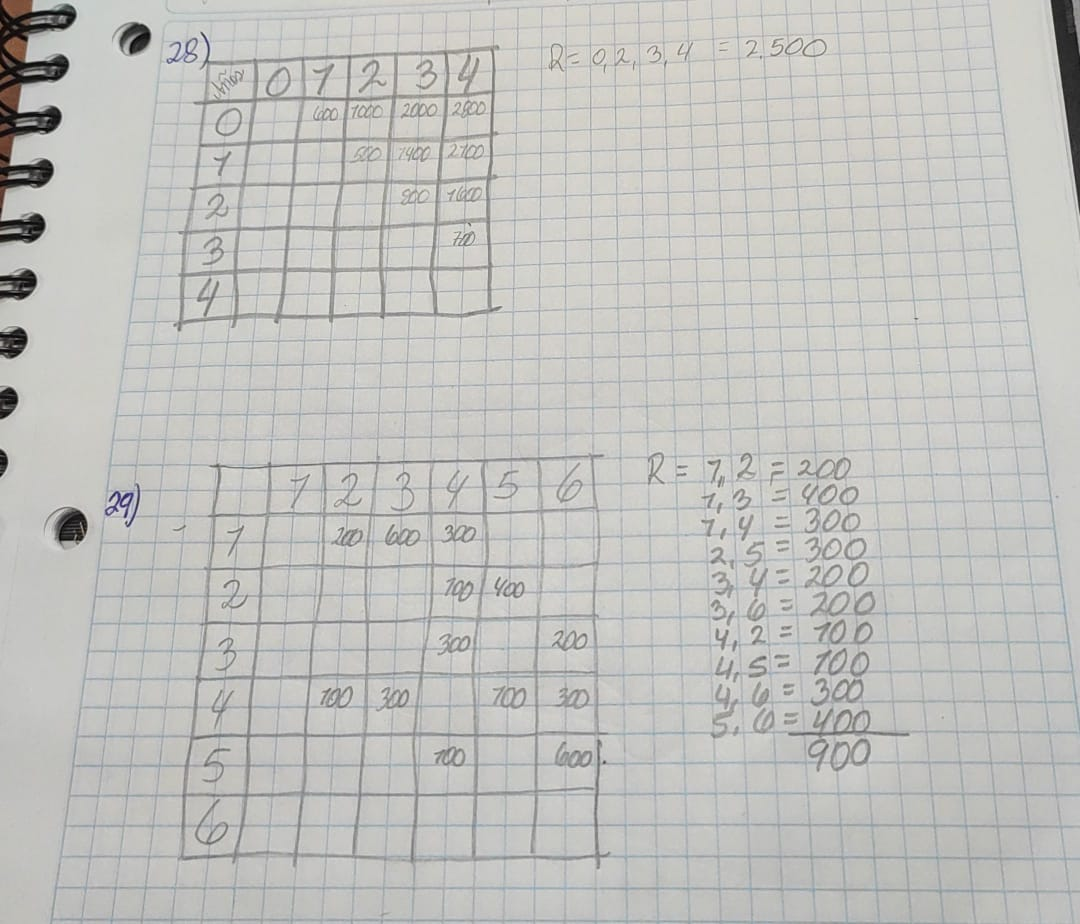 28)
Años 0 1 2 3 4
0 600 1000 2000 2800
1 500 1400 2100
2 800 1600
3 700
4
R= 0, 2, 3, 4 = 2.500
29)
1 2 3 4 5 6
1 200 600 300
2 100 400
3 300 200
4 100 300 100 300
5 100 600
6
R = 1, 2 = 200
1, 3 = 400
1, 4 = 300
2, 5 = 300
3, 4 = 200
3, 6 = 200
4, 2 = 100
4, 5 = 100
4, 6 = 300
5, 6 = 400
900